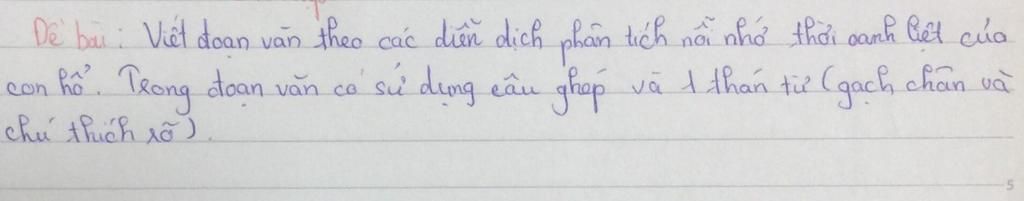 Đề bài: Viết đoạn văn theo các diễn dịch phân tích nỗi nhớ thời oanh liệt của
con hổ. Trong đoạn văn có sử dụng câu ghép và 1 thán từ (gạch chân và
chú thích rõ).
5